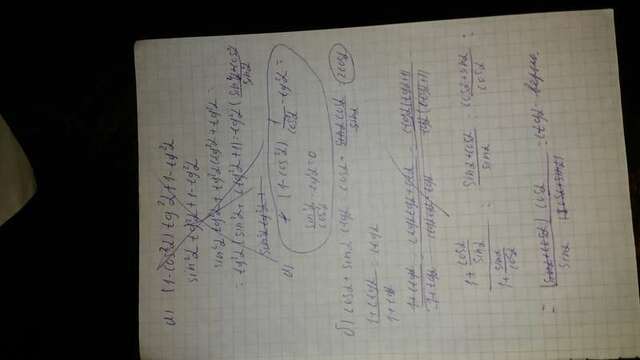 а) (1-cos²α) tg²α+1-tg²α
sin²α tg²α+1-tg²α
sin²α tg²α + tg²α ctg²α + tg²α =
= tg²α (sin²α + ctg²α+1) = tg²α (sin²α+cos²α / sin²α
sin²α tg²α +
а) (1-cos²α) 1/cos²α - tg²α =
sin²α/cos²α - tg²α = 0
б) cosα + sinα ctgα = cosα + sinα cosα/sinα = 2cosα
1+ctgα/1+tgα = ctgα
1+ctgα/1+tgα
1+cosα/sinα / 1+sinα/cosα = sinα+cosα/sinα : cosα+sinα/cosα =
= (sinα+cosα) cosα / sinα (cosα+sinα) = ctgα - верно.